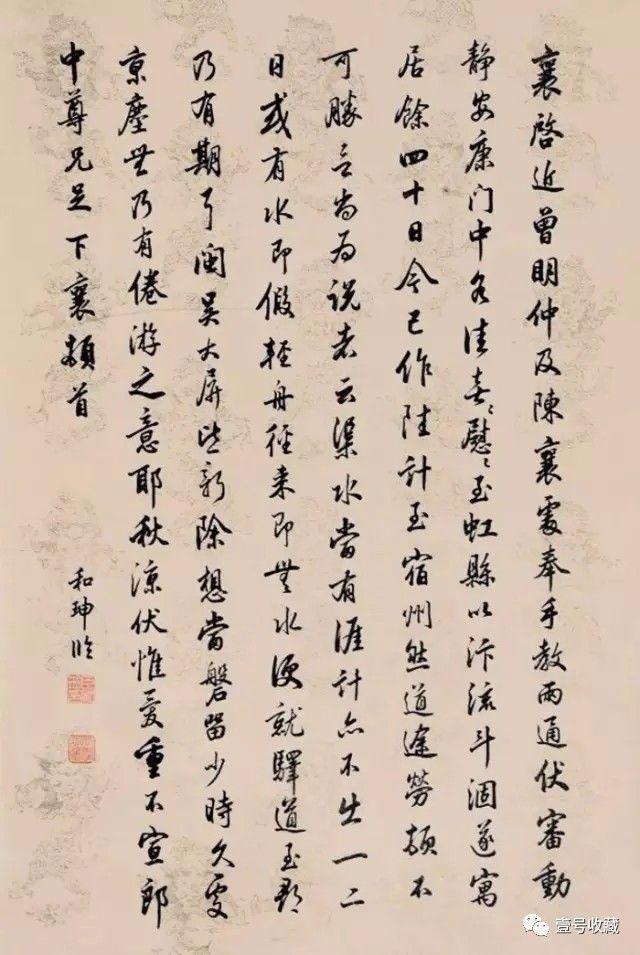 襄啓近曾明仲及陳襄處奉手教兩通伏審動
靜安康门中各佳喜〻慰〻至虹縣以汴流斗涸遂寓
居餘四十日今已作陸計至宿州然道途勞頓不
可勝言尚为説者云渠水當有涯計亦不出一二
日或有水即假輕舟徑来即無水便就驛道至都
乃有期耳閩吴大屏此新除想當磐留少時久雯
京塵無乃有倦游之意耶秋凉伏惟愛重不宣郎
中尊兄足下襄頓首
和珅临
壹号收藏